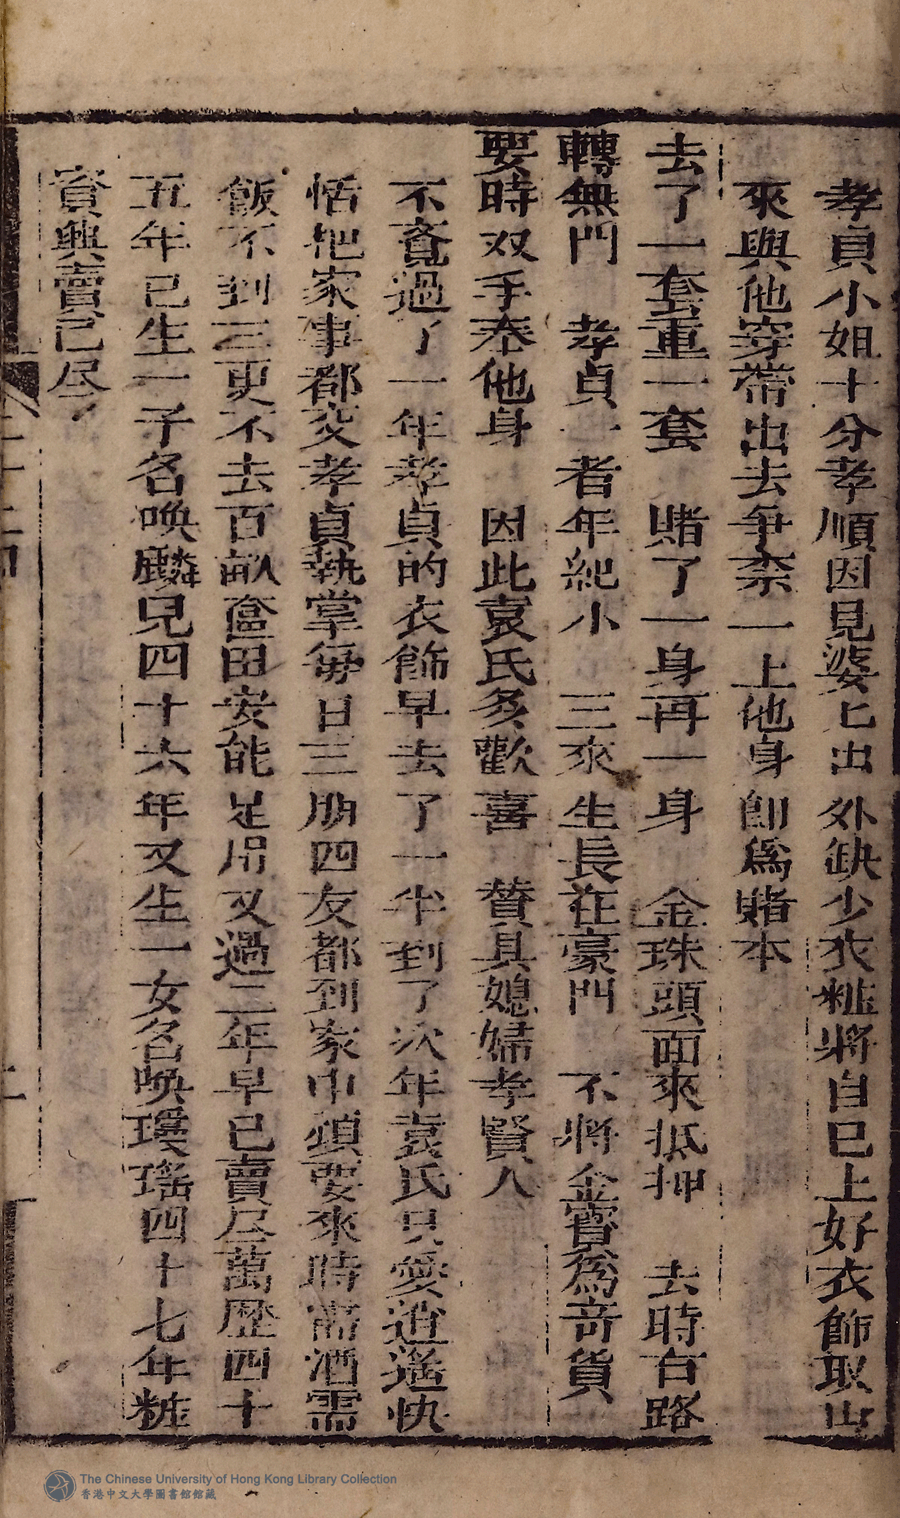 孝貞小姐十分孝順因見婆匕出外缺少衣粧將自巳上好衣飾取出
來與他穿帶出去爭柰一上他身卽爲賭本
去了一套重一套　賭了一身再一身　金珠頭面來抵押　去時有路
轉無門　孝貞一者年紀小　三來生長在豪門　不將金寶爲竒貨
要時双手奉他身　因此袁氏多歡喜　贊具媳婦孝賢人
不覺過了一年孝貞的衣飾早去了一半到了次年袁氏只愛逍遙快
恬把家事都交孝貞執掌每日三朋四友都到家中頑耍來時需酒需
飯不到三更不去百畝奩田安能足用又過二年早已賣尽萬歷四十
五年已生一子名喚麟兒四十六年又生一女名喚瓊瑤四十七年粧
資典賣已尽了
二十四
二
The Chinese University of Hong Kong Library Collection
香港中文大學圖書館館藏